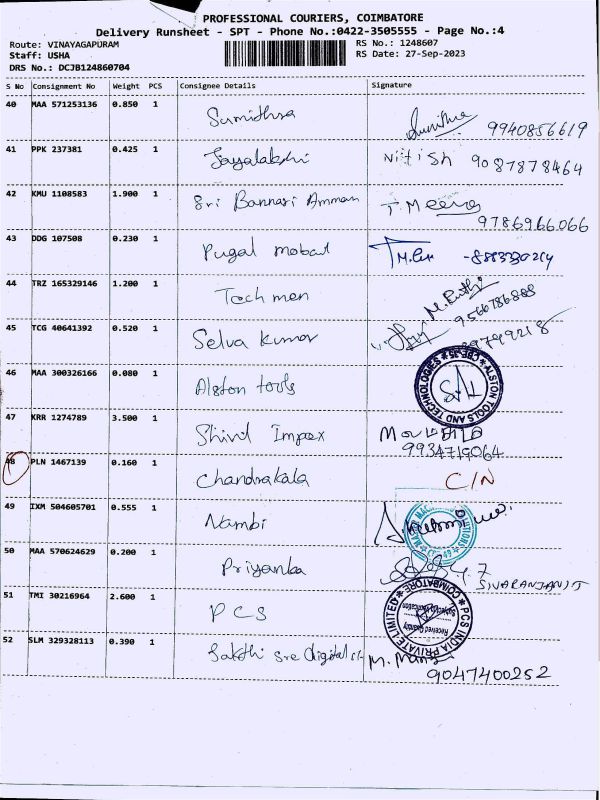 PROFESSIONAL COURIERS, COIMBATORE
Delivery Runsheet - SPT - Phone No.:0422-3505555 - Page No.:4
Route: VINAYAGAPURAM
RS No.: 1248607
Staff: USHA
RS Date: 27-Sep-2023
DRS No.: DCJB124860704
S No Consignment No Weight PCS Consignee Details Signature
40 MAA 571253136 0.850 1 Sumithra 9940856619
41 PPK 237381 0.425 1 Jayalakshi Nitish 9087878464
42 KMU 1108583 1.900 1 Sri Bannari Amman T. Meena
9786966066
43 DDG 107508 0.230 1 Pugal mobail
44 TRZ 165329146 1.200 1 Tech men
9566786808
45 TCG 40641392 0.520 1 Selva kumar
46 MAA 300326166 0.080 1 Alston tools
ALSTON TOOLS AND TECHNOLOGIES CBE-35
47 KRR 1274789 3.500 1 Shivil Impex
9934719064
48 PLN 1467139 0.160 1 Chandrakala C/N
49 IXM 504605701 0.555 1 Nambi
50 MAA 570624629 0.200 1 Priyanka
SIVARANJANI T
51 TMI 30216964 2.600 1 PCS
PCS INDIA PRIVATE LIMITED COIMBATORE
Received Quantity
52 SLM 329328113 0.390 1 Sakthi sre digital
9047400252